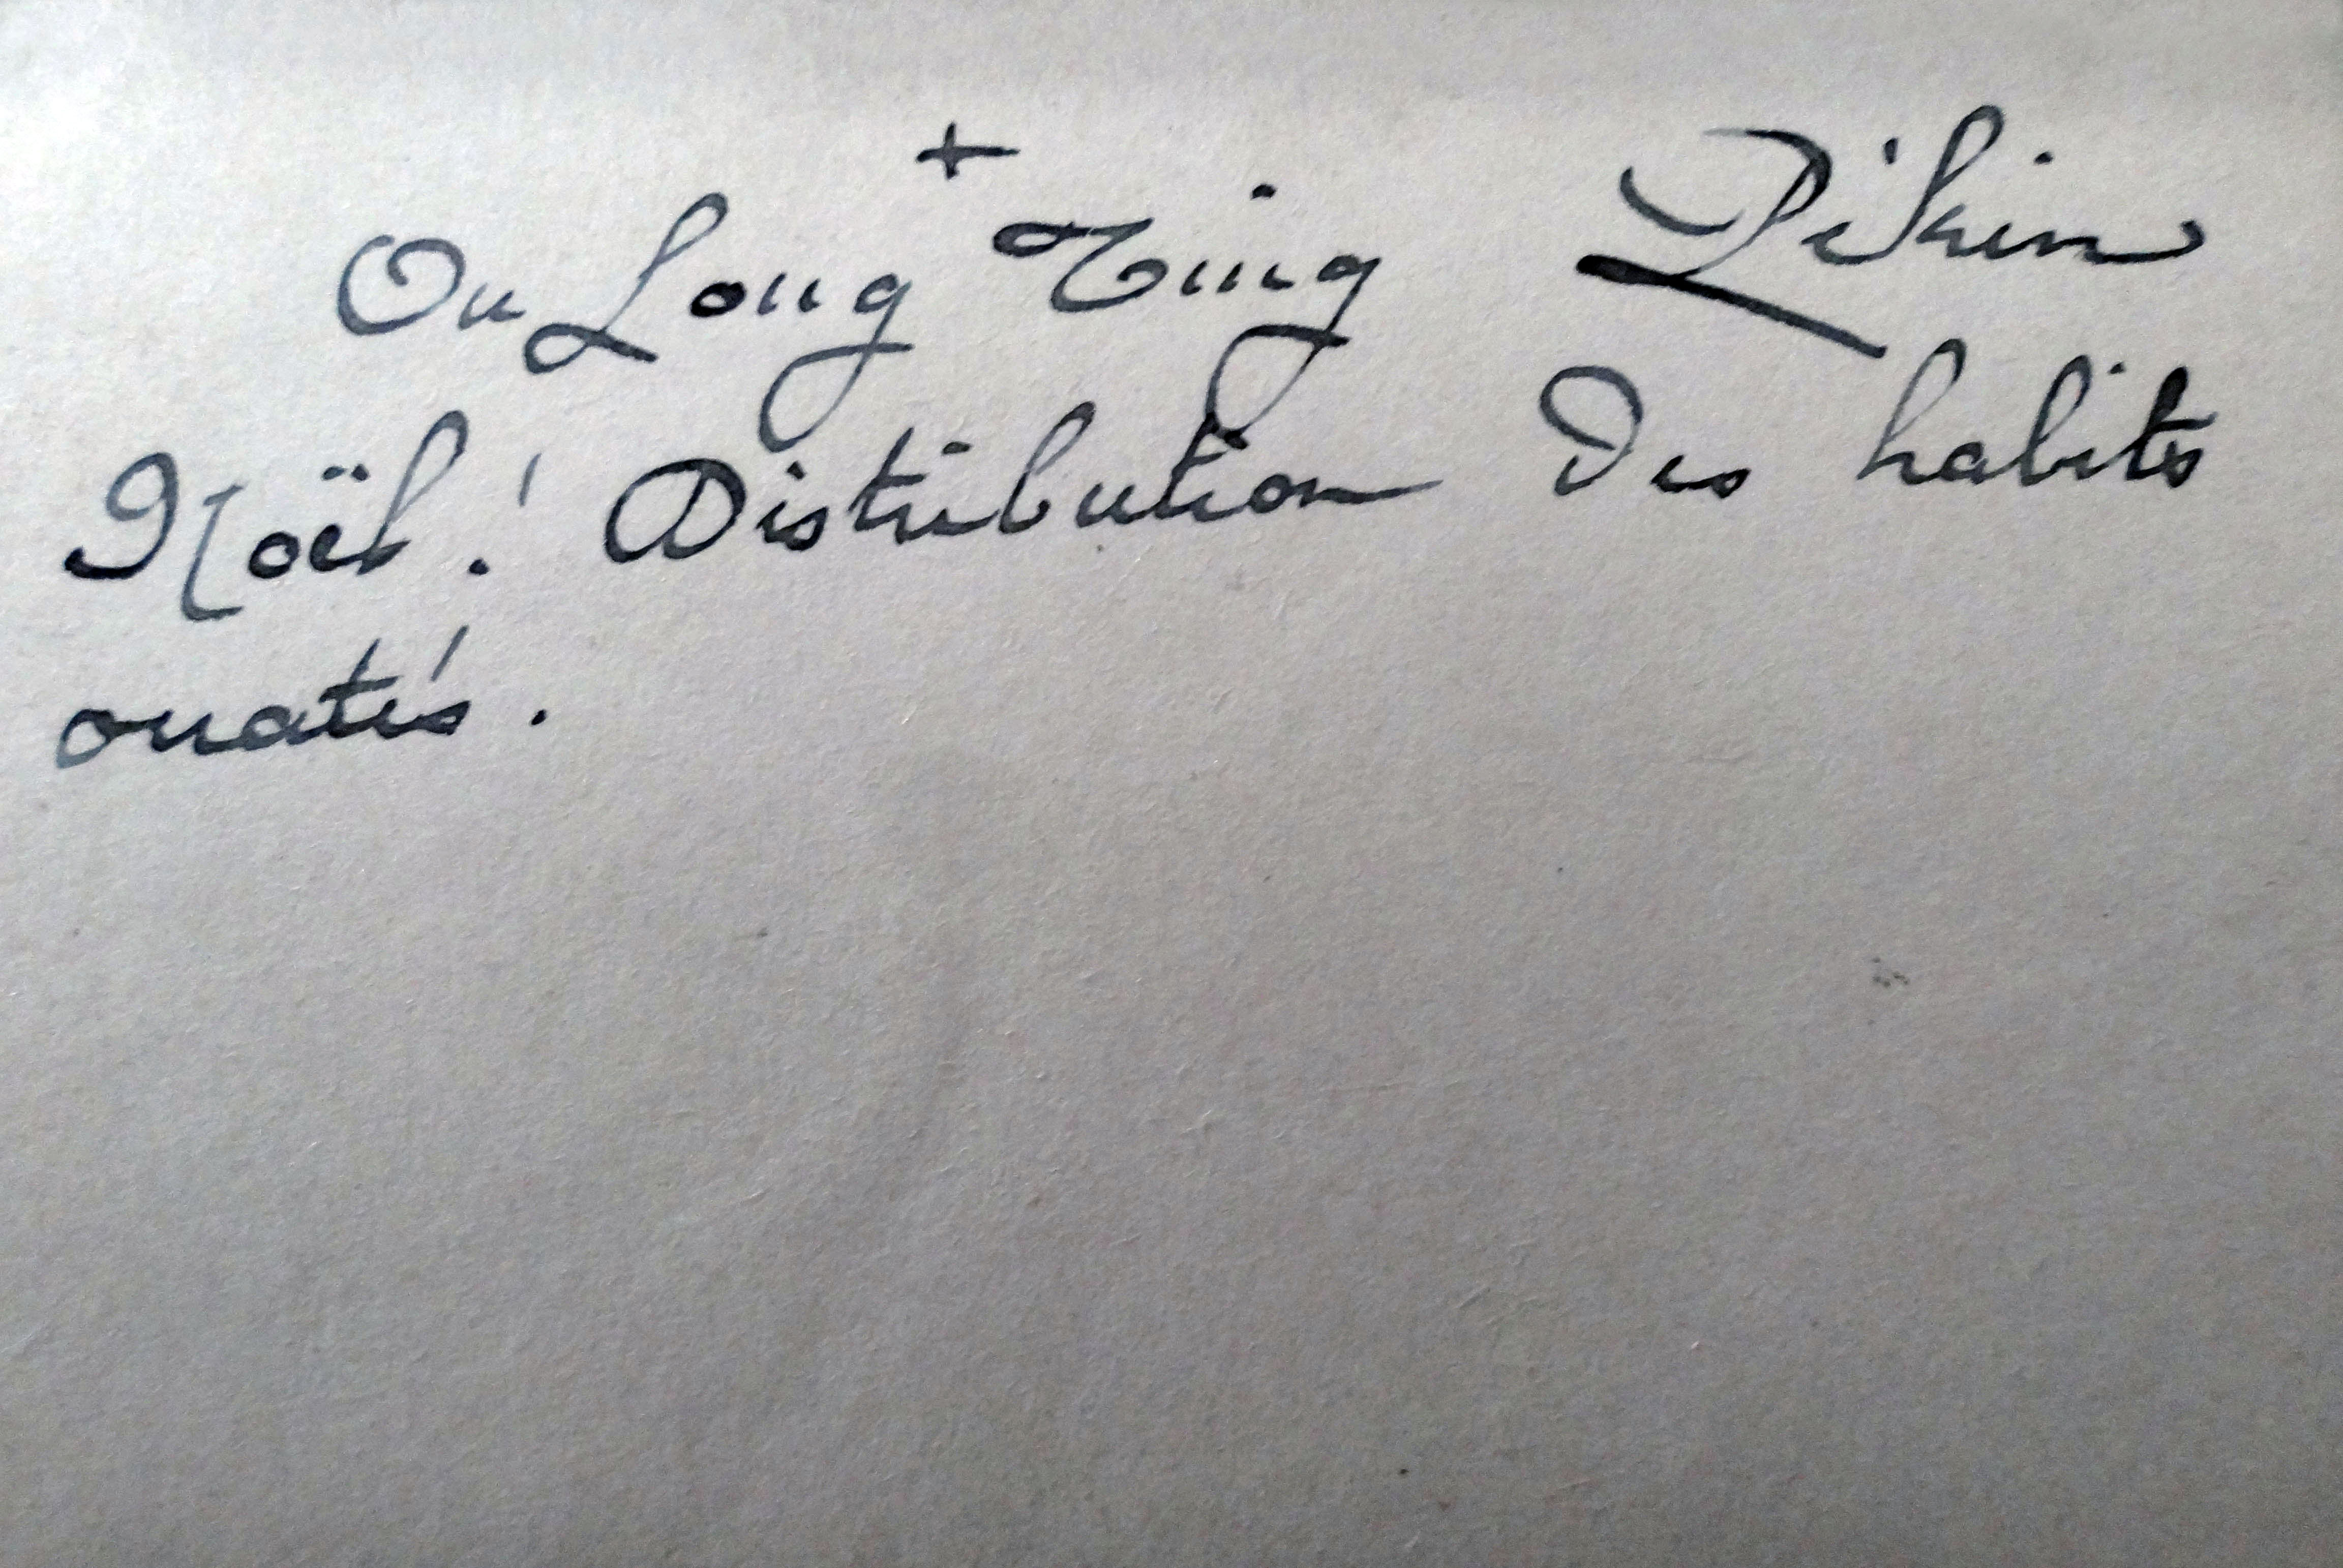 +
Ou Long Ting Pékin
Noël ! Distribution des habits
ouatés.